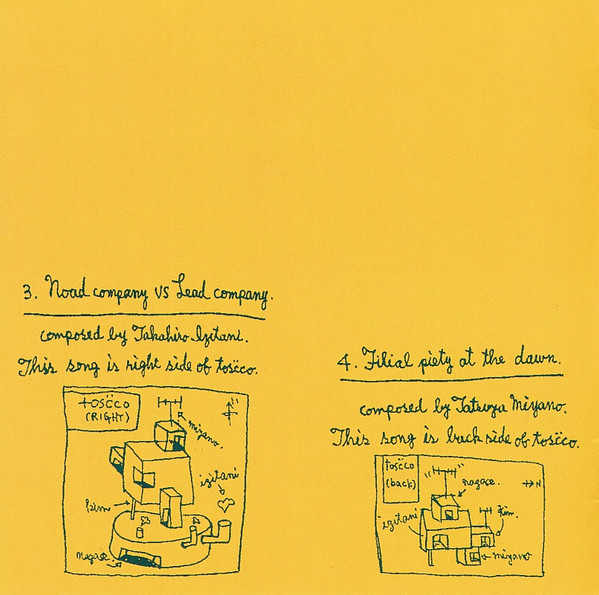 3. Noad company VS Lead company.
composed by Takahiro Izitani.
This song is right side of toscco.
toscco
(RIGHT)
mizano.
izitani
kim
nagase.
4. Filial piety at the dawn.
composed by Tatsuya Miyano.
This song is back side of toscco.
toscco
(back)
nagase.
N
izitani
kim.
miyano